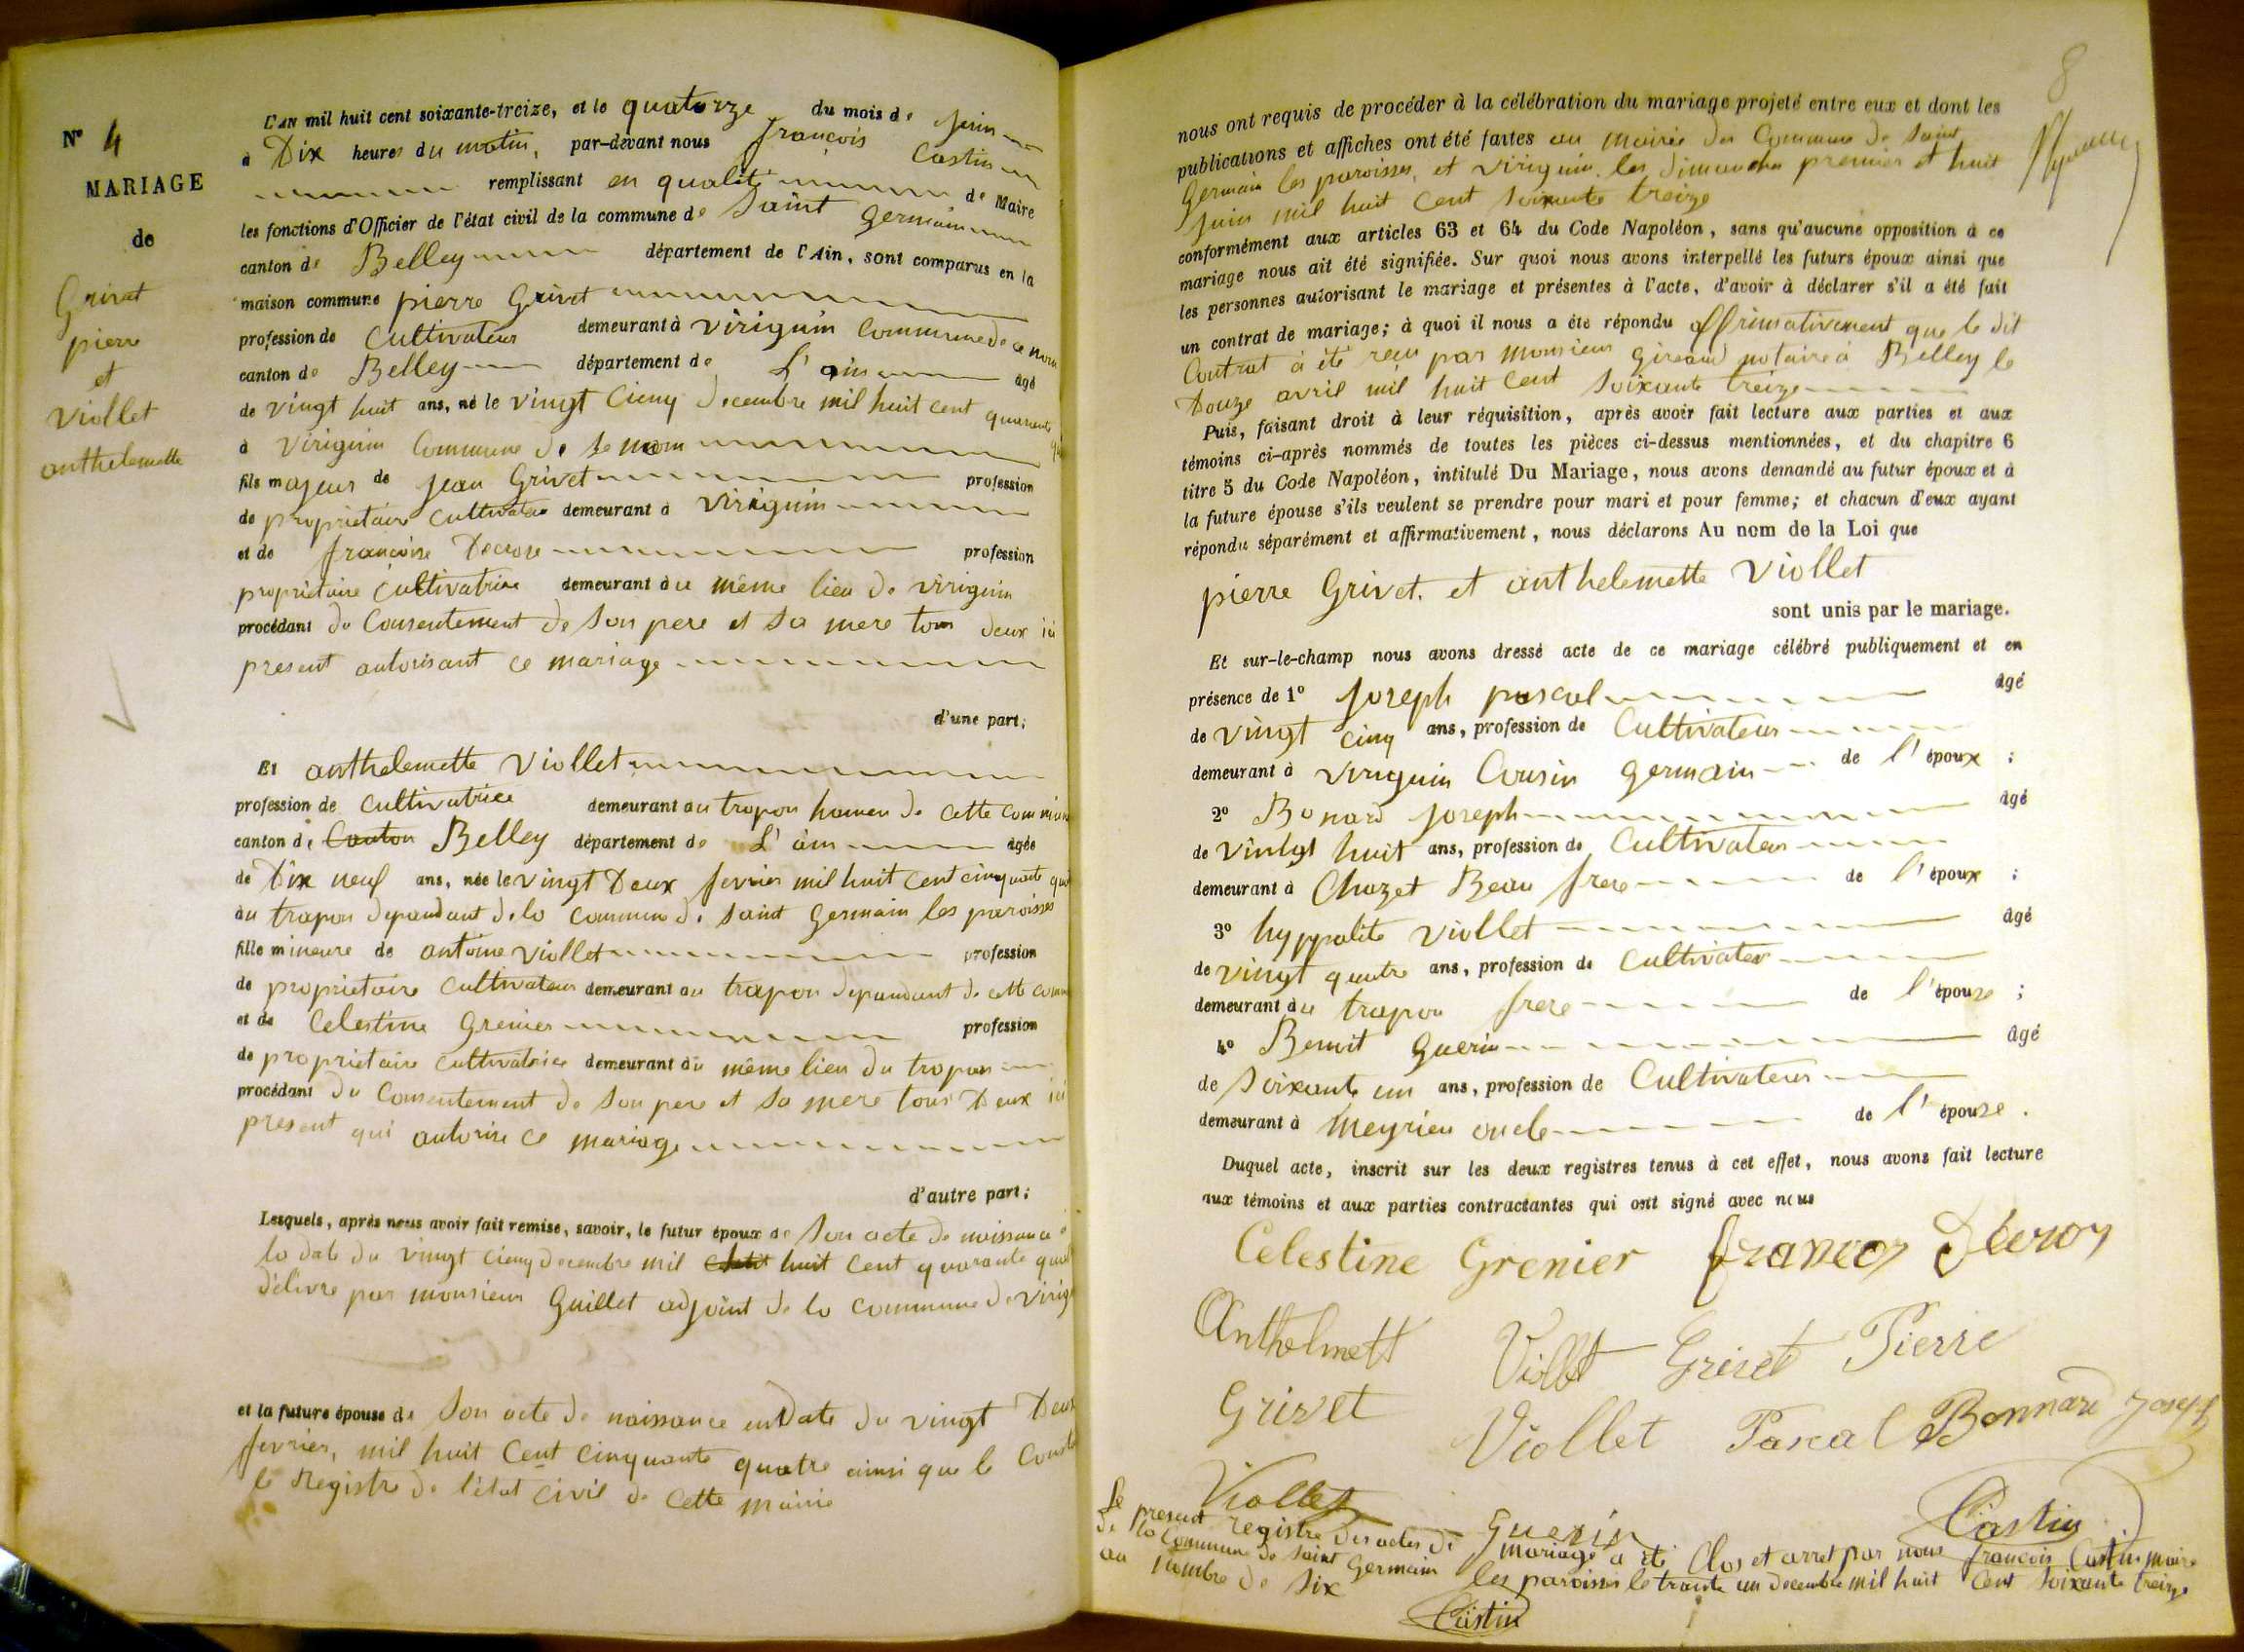 N° 4
MARIAGE
de
Grivat
pierre
et
viollet
anthelemette
L'AN mil huit cent soixante-treize, et le quatorze du mois de juin
à Dix heures du matin, par-devant nous françois Castin
remplissant en qualité de Maire
les fonctions d'Officier de l'état civil de la commune de Saint germain
canton de Belley département de l'Ain, sont comparus en la
maison commune pierre Grivet
profession de Cultivateur demeurant à virignin Commune de ce nom
canton de Belley département de L'ain âgé
de vingt huit ans, né le vingt Cienq Decembre mil huit cent quarante
à virignin Commune de se nom
fils majeur de jean Grivet profession
de proprietaire Cultivateur demeurant à virignin
et de françoise Decroze profession
proprietaire Cultivatrice demeurant au même lieu de virignin
procédant du Consentement de Son pere et Sa mere tous deux ici
present autorisant ce mariage
d'une part;
Et anthelemette viollet
profession de cultivatrice demeurant au trapon hameu de cette commune
canton de Canton Belley département de L'ain âgée
de Dix neuf ans, née le vingt Deux fevrier mil huit cent cinquante
au trapon dependant de la commune de Saint germain les paroisses
fille mineure de antoine viollet profession
de proprietaire Cultivateur demeurant au trapon dependant de cette
et de Celestine Grenier profession
de proprietaire cultivatrice demeurant au même lieu du trapon
procédant du Consentement de Son pere et Sa mere tous Deux ici
present qui autorise ce mariage
d'autre part;
Lesquels, après nous avoir fait remise, savoir, le futur époux de Son acte de naissance à
la date du vingt cienq decembre mil huit cent quarante
délivre par monsieur Guillet adjoint de la commune de
et la future épouse de Son acte de naissance en Date du vingt Deux
fevrier, mil huit Cent Cinquante quatre ainsi que le
le Registre de l'état civil de cette mairie
8
nous ont requis de procéder à la célébration du mariage projeté entre eux et dont les
publications et affiches ont été faites au mairie des Commune de Saint
germain les paroisses, et virignin les dimanches premier et huit
juin mil huit Cent Soixante treize
conformément aux articles 63 et 64 du Code Napoléon, sans qu'aucune opposition à ce
mariage nous ait été signifiée. Sur quoi nous avons interpellé les futurs époux ainsi que
les personnes autorisant le mariage et présentes à l'acte, d'avoir à déclarer s'il a été fait
un contrat de mariage; à quoi il nous a été répondu affirmativement que le dit
Contrat à été reçu par monsieur notaire à Belley le
Douze avril mil huit cent Soixante treize
Puis, faisant droit à leur réquisition, après avoir fait lecture aux parties et aux
témoins ci-après nommés de toutes les pièces ci-dessus mentionnées, et du chapitre 6
titre 5 du Code Napoléon, intitulé Du Mariage, nous avons demandé au futur époux et à
la future épouse s'ils veulent se prendre pour mari et pour femme; et chacun d'eux ayant
répondu séparément et affirmativement, nous déclarons Au nom de la Loi que
pierre Grivet, et anthelemette viollet
sont unis par le mariage.
Et sur-le-champ nous avons dressé acte de ce mariage célébré publiquement et en
présence de 1° joseph pascal âgé
de vingt cinq ans, profession de Cultivateur
demeurant à virignin Cousin germain de l'époux ;
2° Bonard joseph âgé
de vintgt huit ans, profession de Cultivateur
demeurant à Chazet Beau frere de l'époux ;
3° hyppolite viollet âgé
de vingt quatre ans, profession de Cultivateur
demeurant au trapon frere de l'épouse ;
4° Benoit Guerin âgé
de Soixante un ans, profession de Cultivateur
demeurant à meyrieu oncle de l'épouse.
Duquel acte, inscrit sur les deux registres tenus à cet effet, nous avons fait lecture
aux témoins et aux parties contractantes qui ont signé avec nous
Celestine Grenier
Anthelmett Viollet Grivet Pierre
Grivet Viollet Pascal Bonnard Joseph
Viollet Guerin Castin
Le present registre des actes de mariage a été Clos et arret par nous françois Castin maire
de la Commune de Saint Germain les paroisses le trante un decembre mil huit Cent Soixante treize
au nombre de Six
Castin